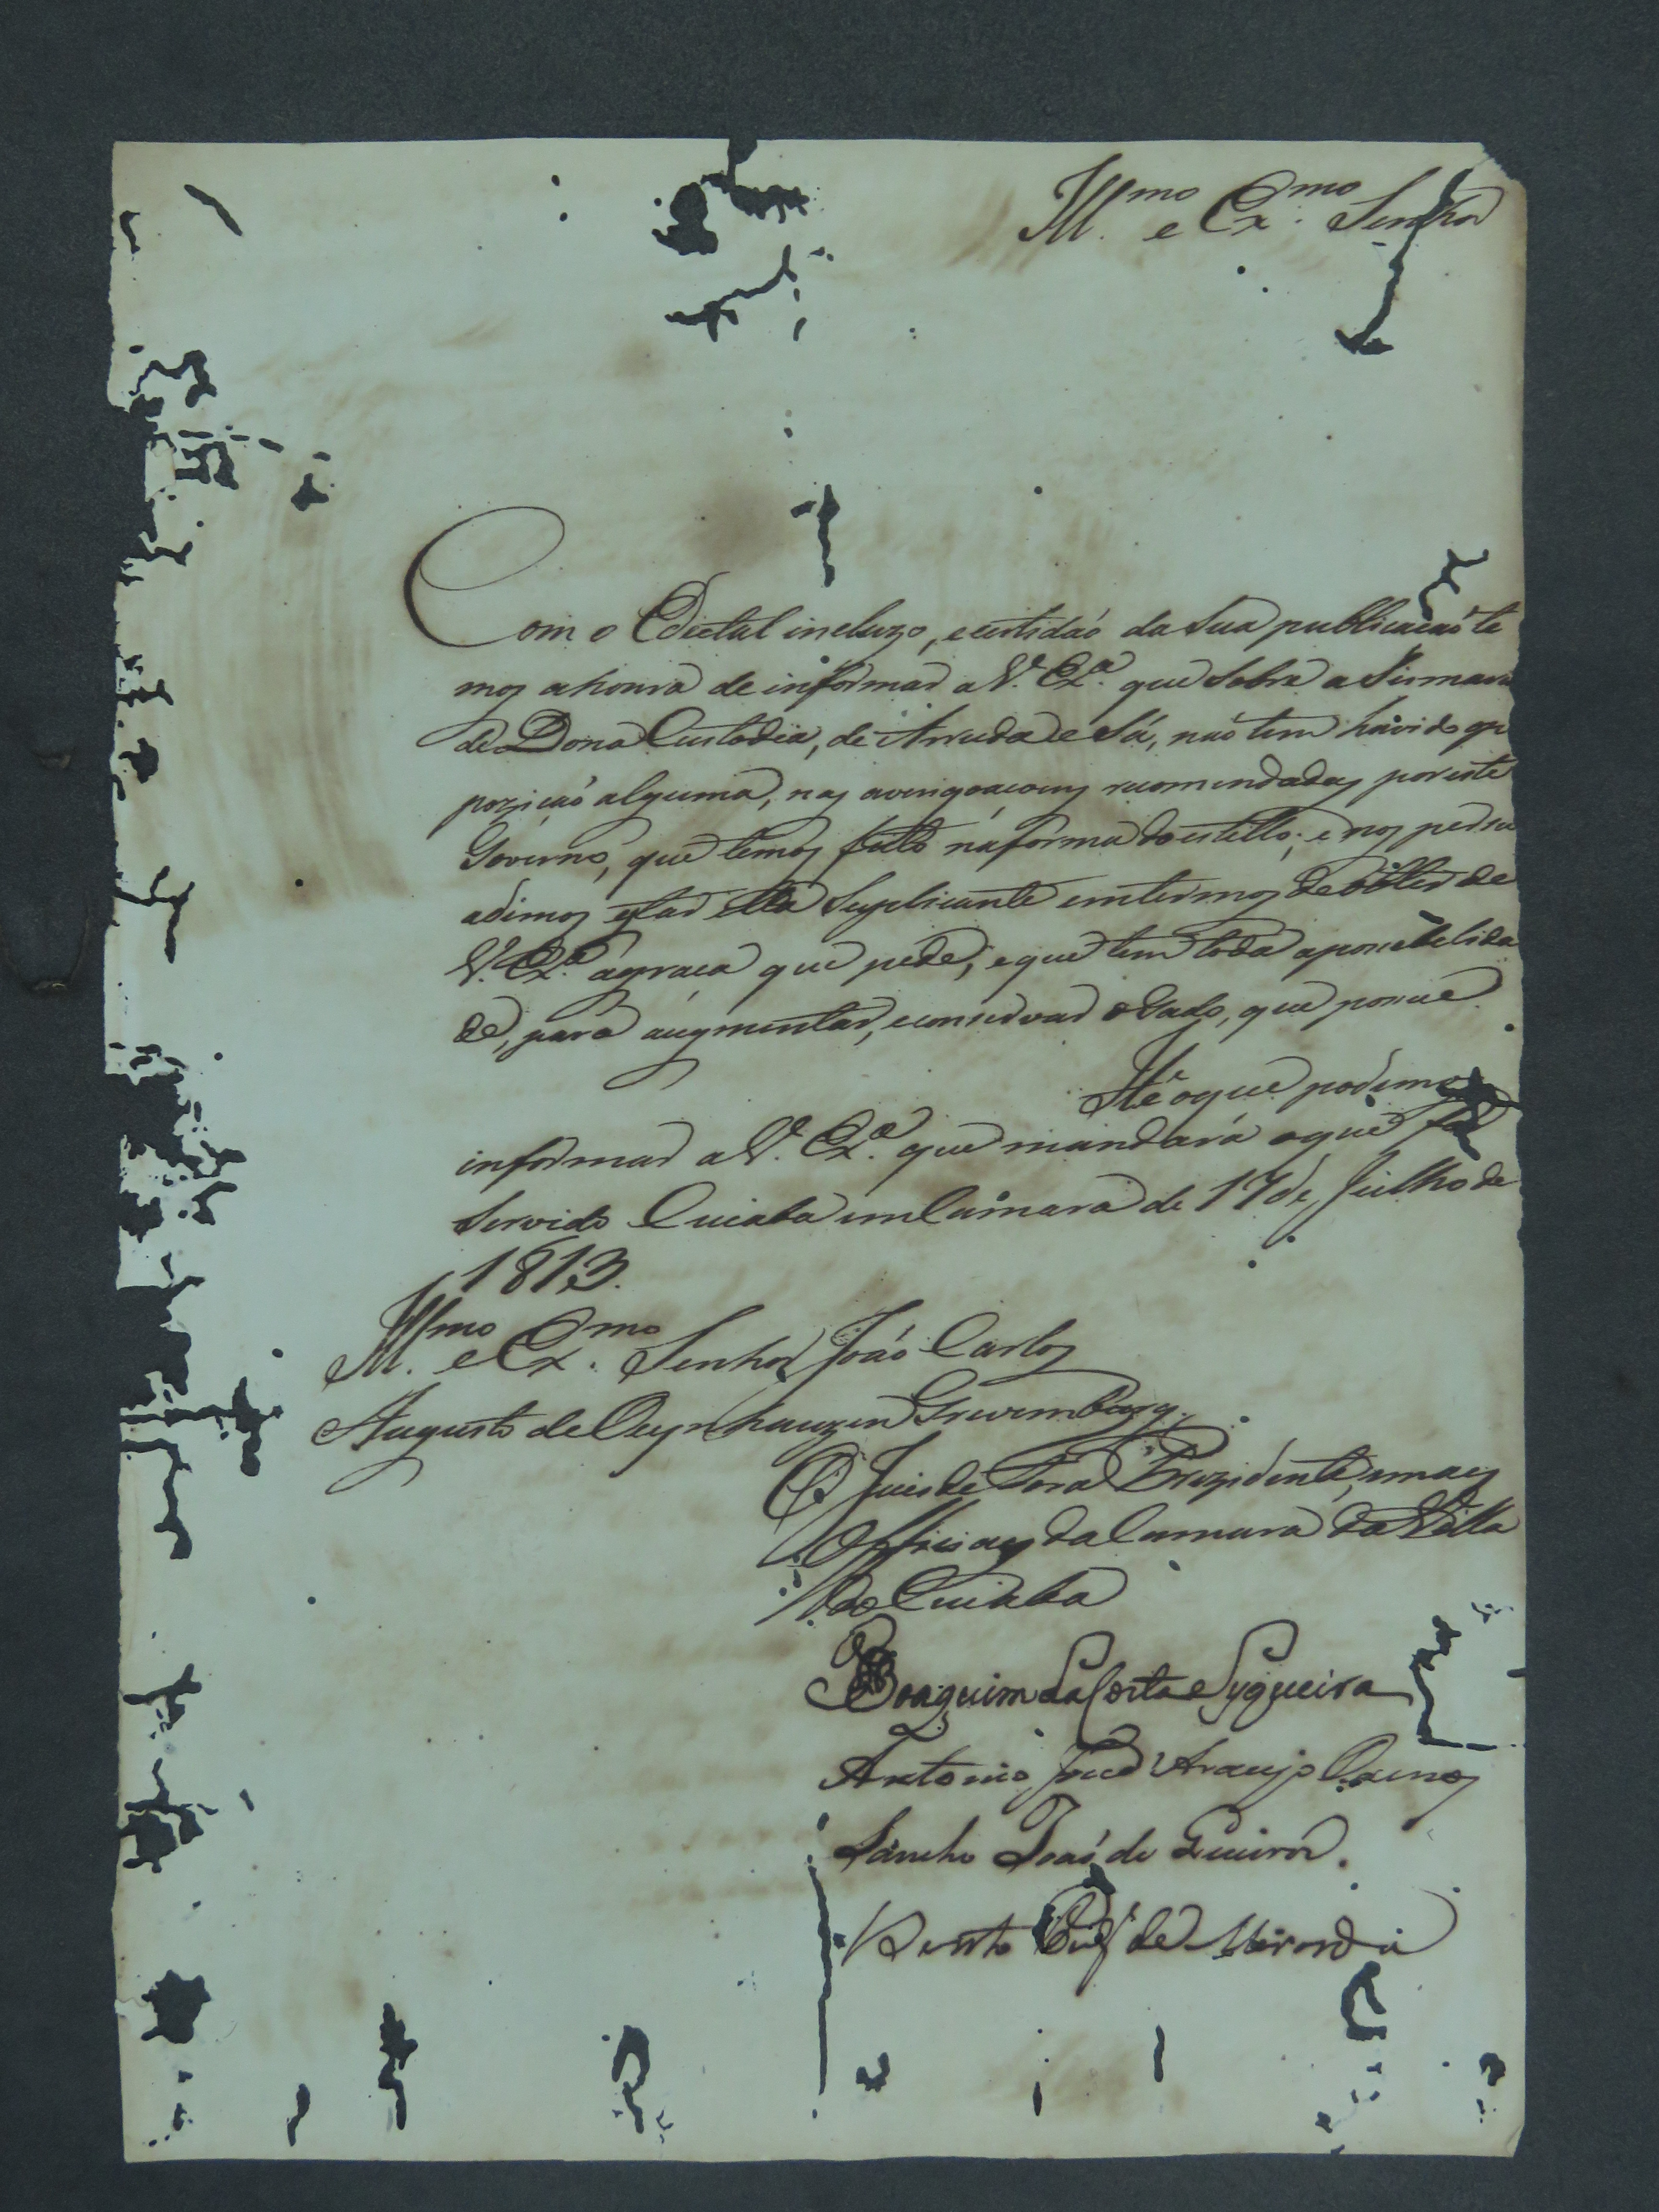 Ill.mo e Ex.mo Senhor
Com o Edictal incluzo, e certidaó da sua publicacaó te
mos a honra de informar a V. Ex.a que sobra a Sismaria
de Dona Custodia, de Arruda e Sá, naó tem havido op
poziçaó alguma, nas averigoacoens recomendadas por este
Governo, que temos feito na forma do estello; e nos persu
adimos estar esta Suplicante em termos de obter de
V. Ex.a a graca que pede; e que tem toda a porcebelida
de, para augmentar, e conservar o Gado, que porcue
He o que podemos
informar a V. Ex.a que mandará o que for
Servido Cuiaba em Camara de 17 de Julho de
1813.
Ill.mo e Ex.mo Senhor Joáo Carlos
Augusto de Oeynhauzen Grevemburg.
O Juis de Fora Prezidente, e mais
Officiaes da Camara da Villa
do Cuiaba
Joaquim da Costa e Sygueira
Antonio José Araujo Ramos
Sancho Joaó de Queiros.
Bento de Miranda